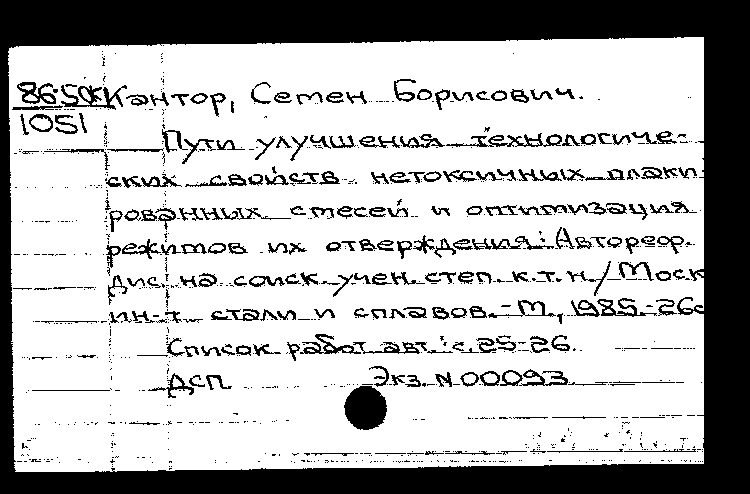 86-50к Кантор, Семен Борисович.
1051
Пути улучшения технологиче-
ских свойств нетоксичных плаки-
рованных смесей и оптимизация
режимов их отверждения: Автореф.
дис. на соиск. учен. степ. к.т.н./Моск
ин-т стали и сплавов.-М., 1985.-26с
Список работ авт.: с. 25-26.
ДСП Экз. N 00093.